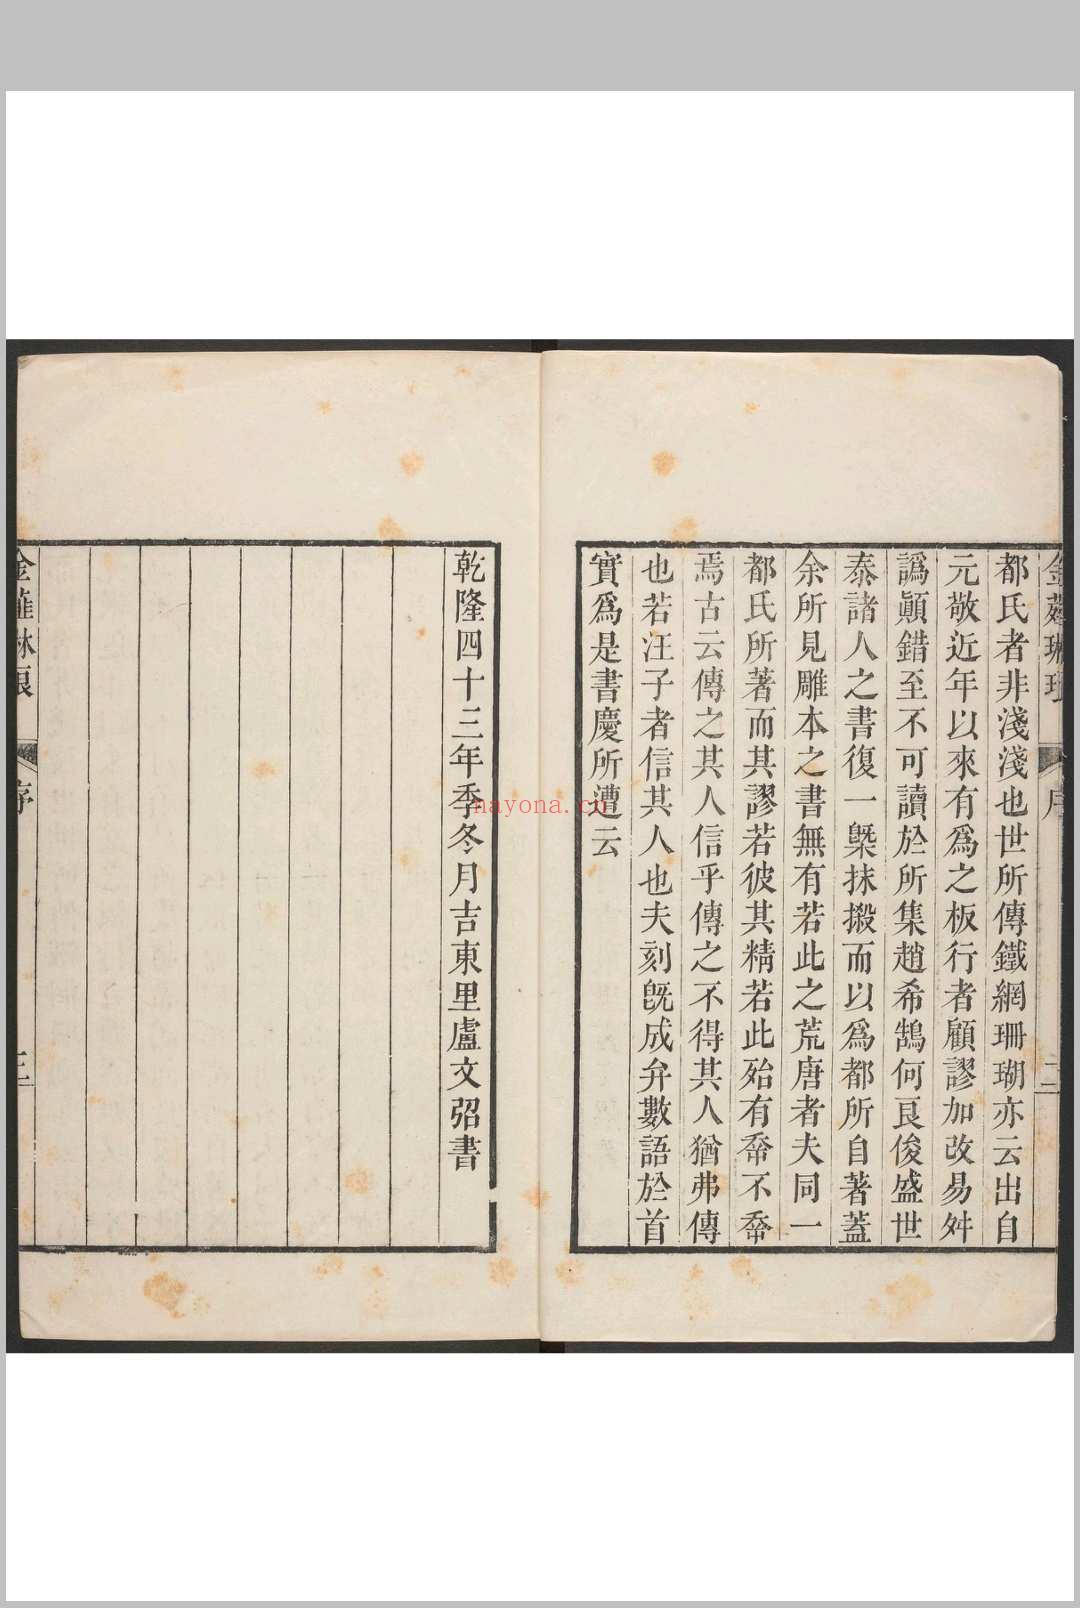 金薤琳琅
序
二
都氏者非淺淺也世所傳鐵網珊瑚亦云出自
元敬近年以來有爲之板行者顧謬加改易舛
譌顚錯至不可讀於所集趙希鵠何良俊盛世
泰諸人之書復一槩抹摋而以爲都所自著蓋
余所見雕本之書無有若此之荒唐者夫同一
都氏所著而其謬若彼其精若此殆有帋不帋
焉古云傳之其人信乎傳之不得其人猶弗傳
也若汪子者信其人也夫刻旣成弁數語於首
實爲是書慶所遭云
乾隆四十三年季冬月吉東里盧文弨書
金薤琳琅
序
三
nayona.cn